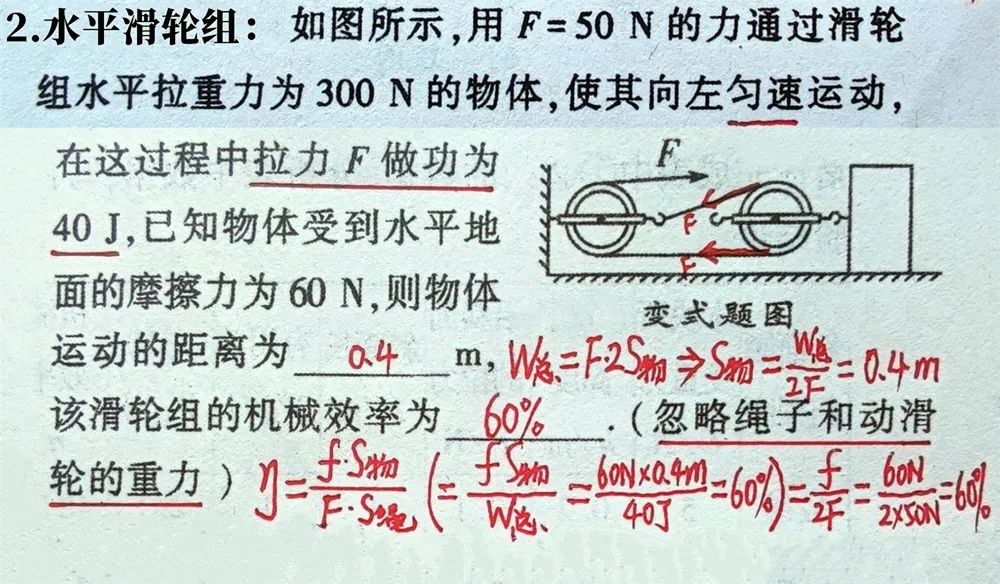 2.水平滑轮组：如图所示,用 F=50 N 的力通过滑轮
组水平拉重力为 300 N 的物体,使其向左匀速运动,
在这过程中拉力 F 做功为
40 J,已知物体受到水平地
面的摩擦力为 60 N,则物体
运动的距离为 0.4 m,
该滑轮组的机械效率为 60% .(忽略绳子和动滑
轮的重力)
F
F
F
变式题图
W总=F·2S物⇒S物=W总/2F=0.4m
η=f·S物/F·S绳(=fS物/W总=60N×0.4m/40J=60%)=f/2F=60N/2×50N=60%